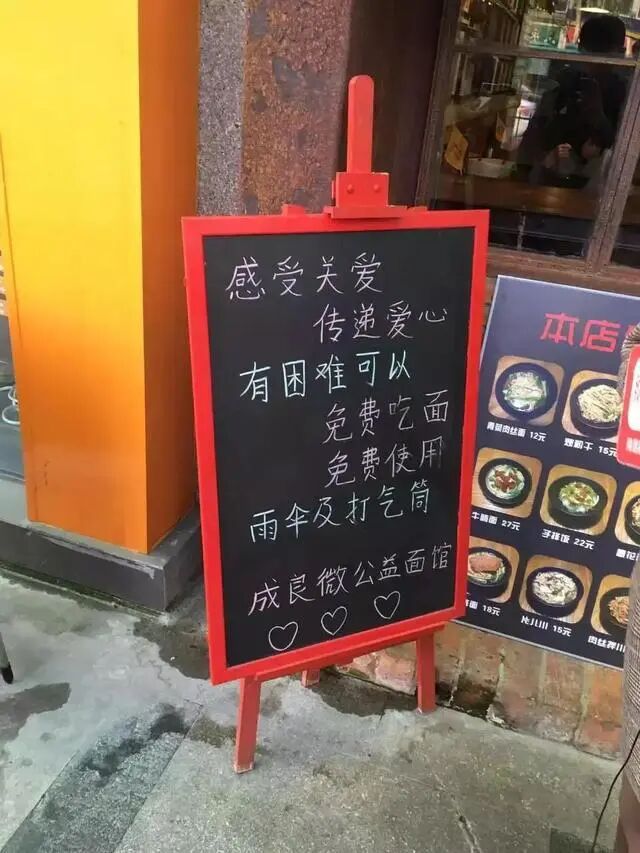 感受关爱
传递爱心
有困难可以
免费吃面
免费使用
雨伞及打气筒
成良微公益面馆
本店
青菜肉丝面 12元
炒粉干 15元
牛腩面 27元
22元
18元
片儿川 15元
肉丝拌川